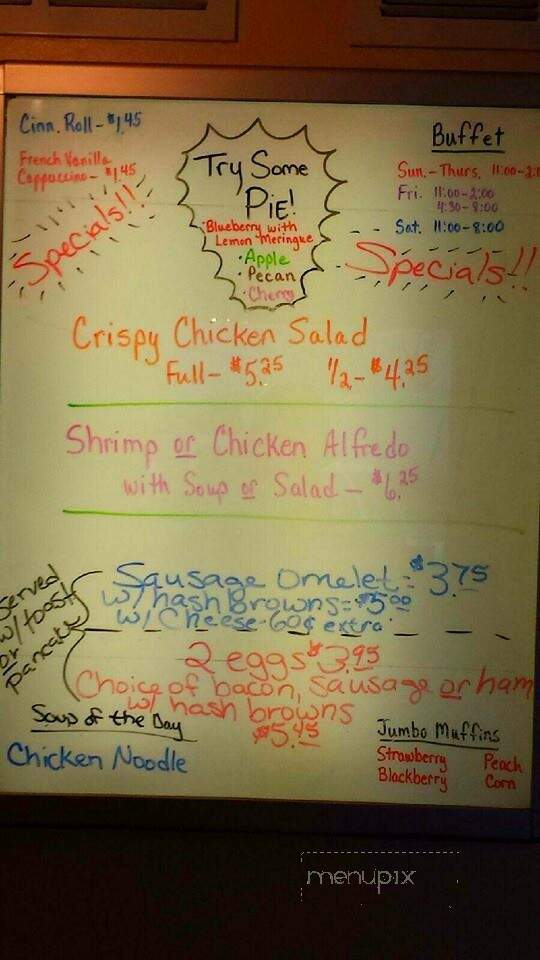 Cinn. Roll - $1.45
French Vanilla
Cappuccino - $1.45
Specials!!
Try Some
Pie!
• Blueberry with
Lemon Meringue
• Apple
• Pecan
• Cherry
Buffet
Sun. - Thurs. 11:00-2:0
Fri. 11:00-2:00
4:30-8:00
Sat. 11:00-8:00
Specials!!
Crispy Chicken Salad
Full - $5.25 1/2 - $4.25
Shrimp or Chicken Alfredo
with Soup or Salad - $6.25
Served
w/ toast
or
Pancake
Sausage Omelet = $3.75
w/ hash Browns = $5.00
w/ Cheese - 60¢ extra
2 eggs $3.95
Choice of bacon, sausage or ham
w/ hash browns
$5.45
Soup of the Day
Chicken Noodle
Jumbo Muffins
Strawberry Peach
Blackberry Corn
menupix